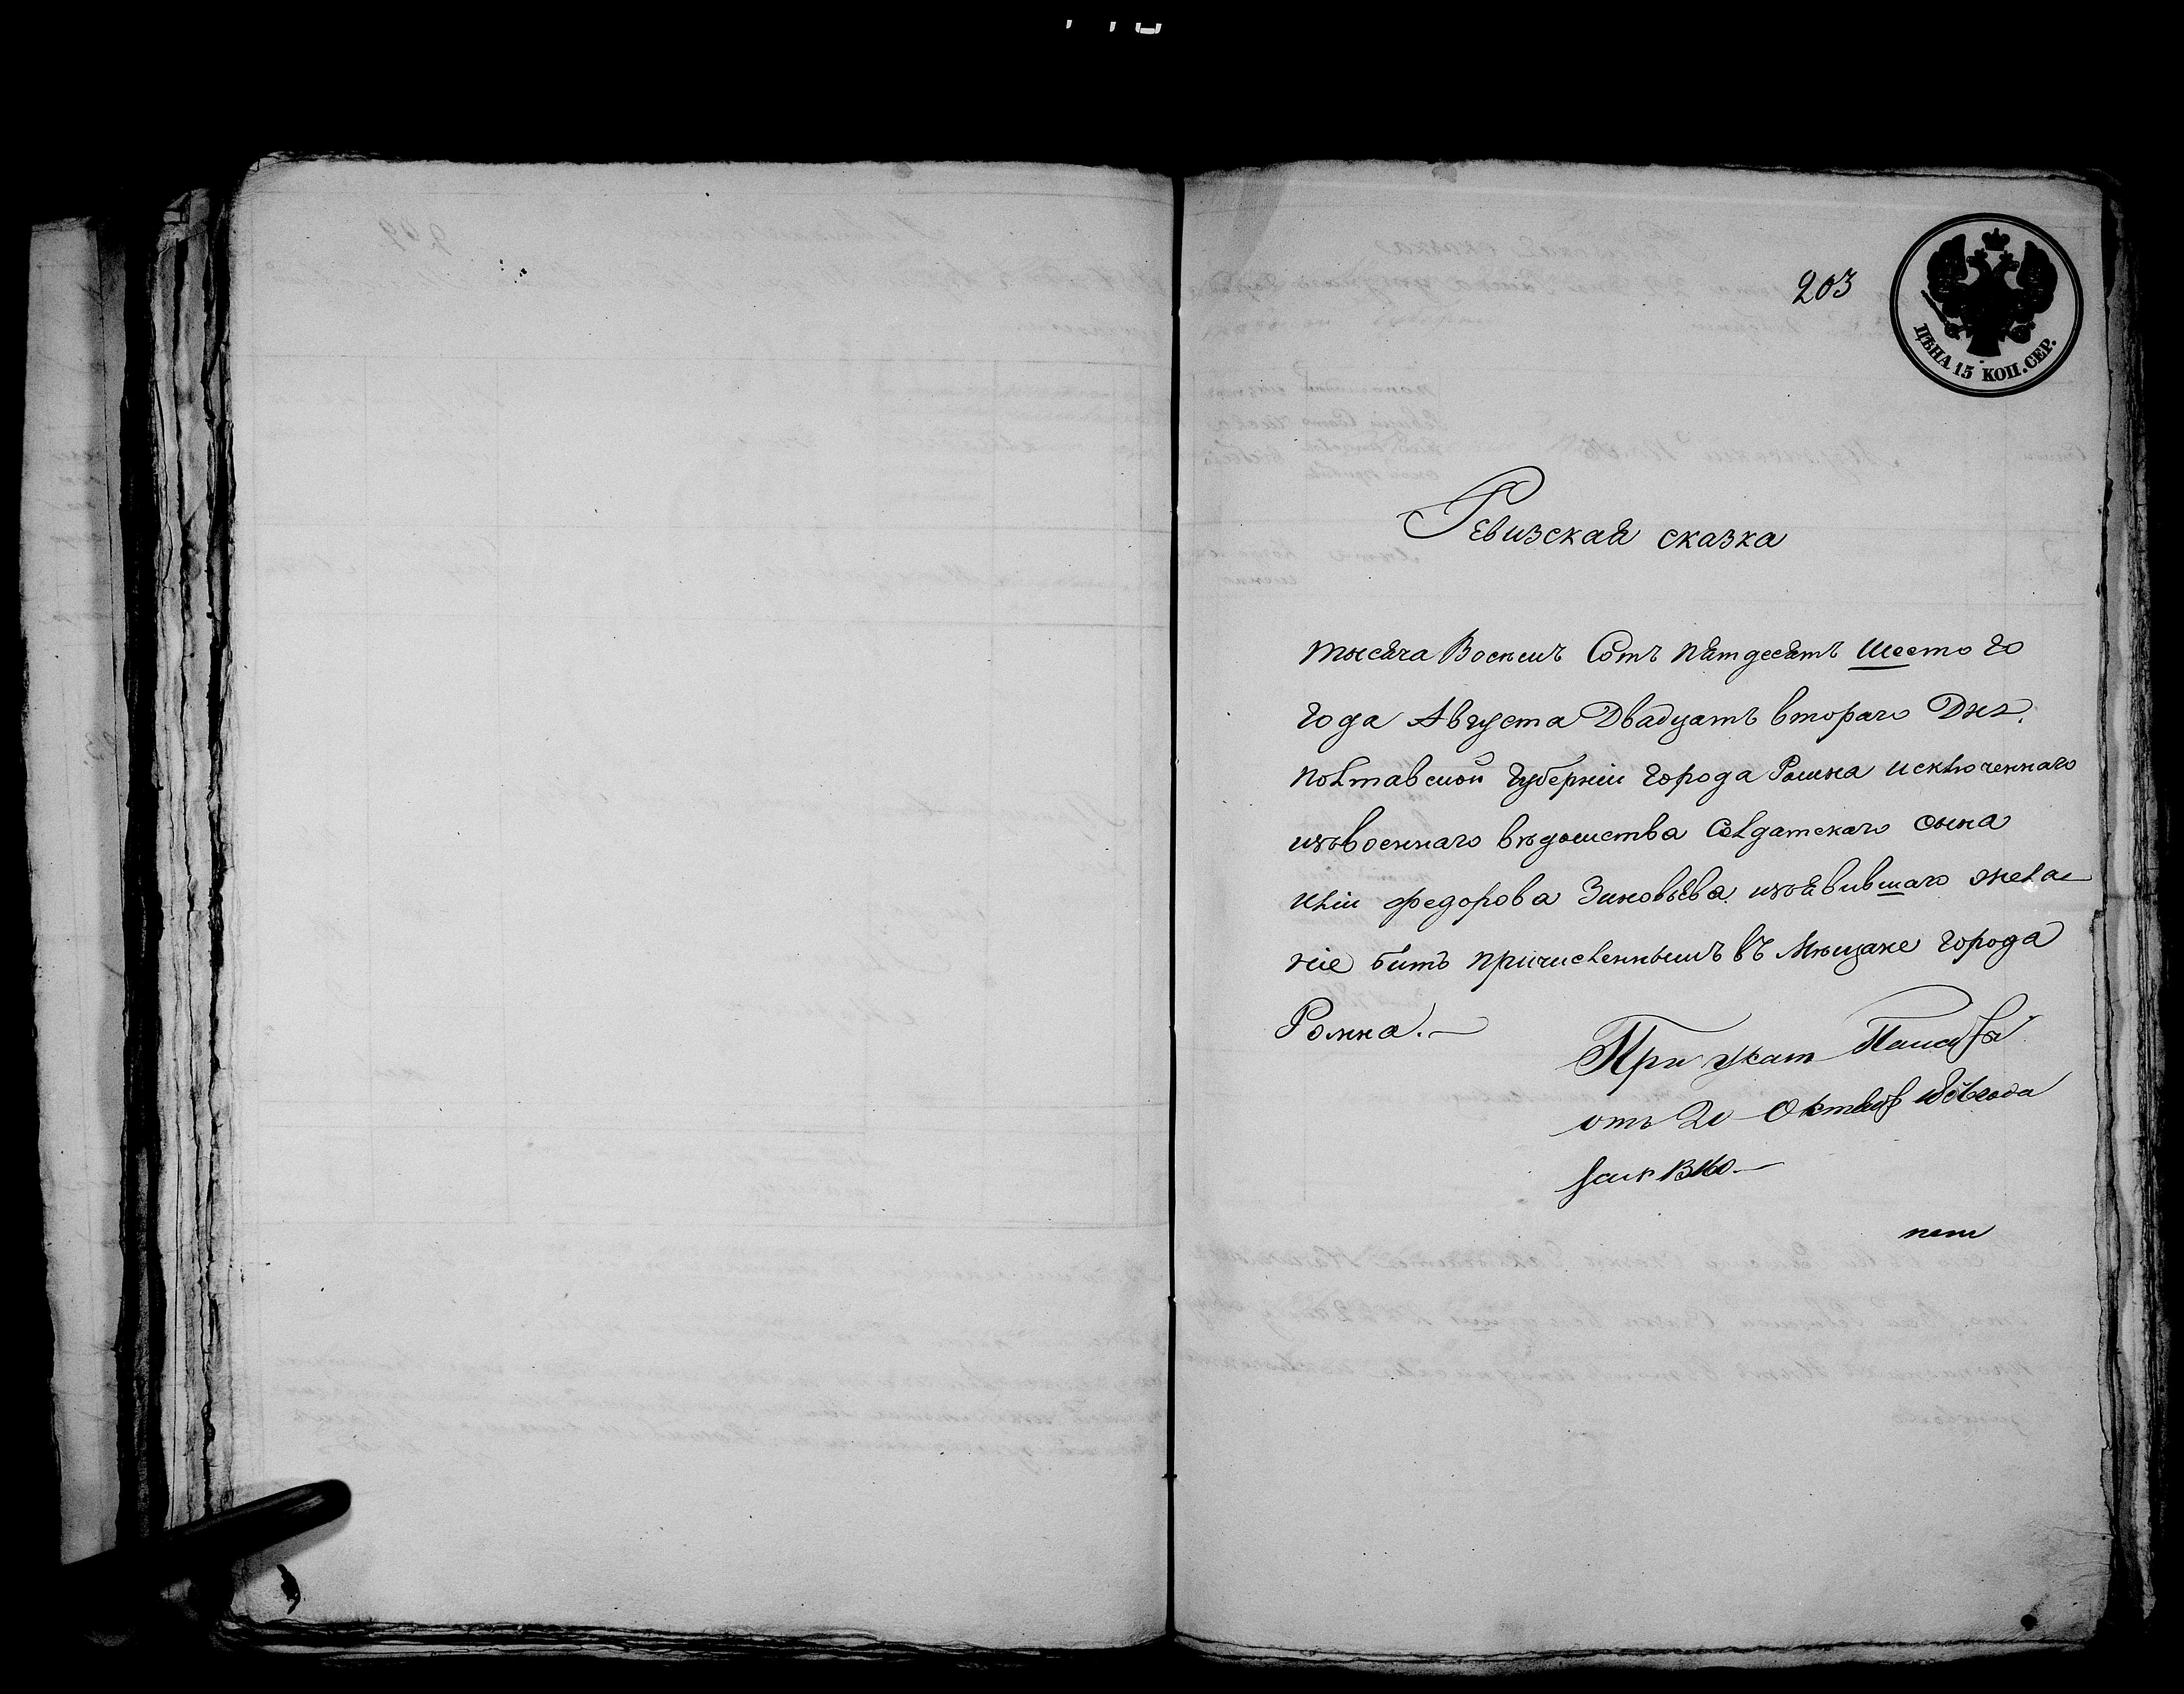 203
ЦѢНА 15 КОП. СЕР.
Ревизская сказка
тысяча Восемъ Сотъ пятдесятъ Шестого
года Августа Двадцать втораго Дня.
полтавской губерніи города Ромна исключеннаго
изъвоеннаго вѣдомства Солдатскаго сына
иліи федорова Зиновьева изъявившаго жела
ніе бить причисленнымъ въ Мѣщане города
Ромна.
При указ Палаты
отъ 20 Октяб года